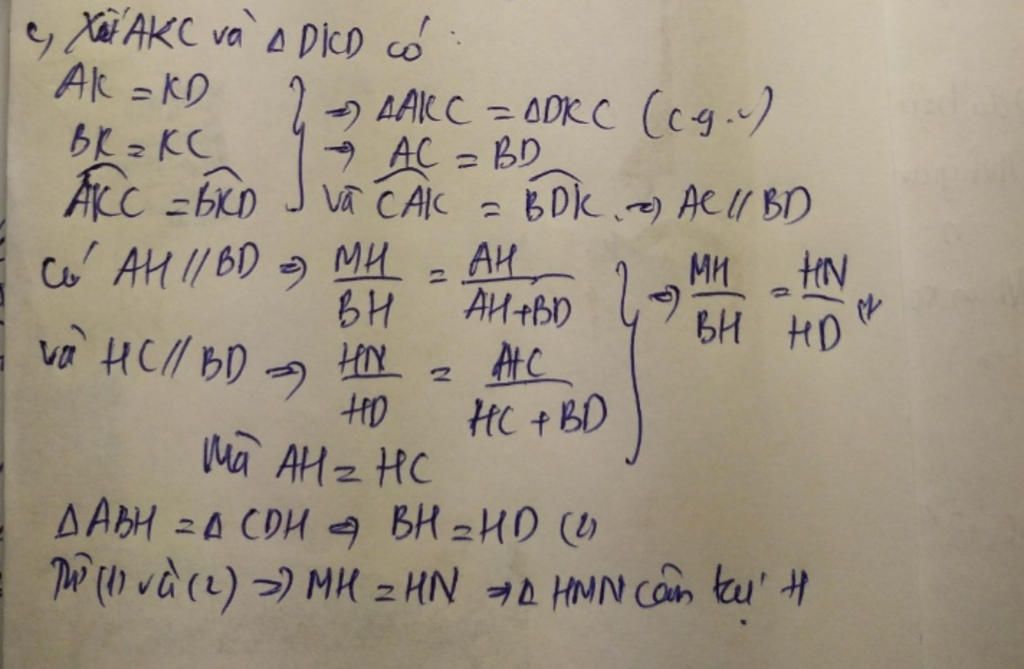 c, Xét AKC và △DKD có :
AK = KD
BK = KC
AKC = BKD
⇒ △AKC = △DKC (c.g.c)
⇒ AC = BD
và CAK = BDK ⇒ AC // BD
Có AH // BD ⇒ MH/BH = AH/AH+BD
và HC // BD ⇒ HN/HD = HC/HC+BD
⇒ MH/BH = HN/HD (1)
Mà AH = HC
△ABH = △CDH ⇒ BH = HD (2)
Từ (1) và (2) ⇒ MH = HN ⇒ △HMN cân tại H